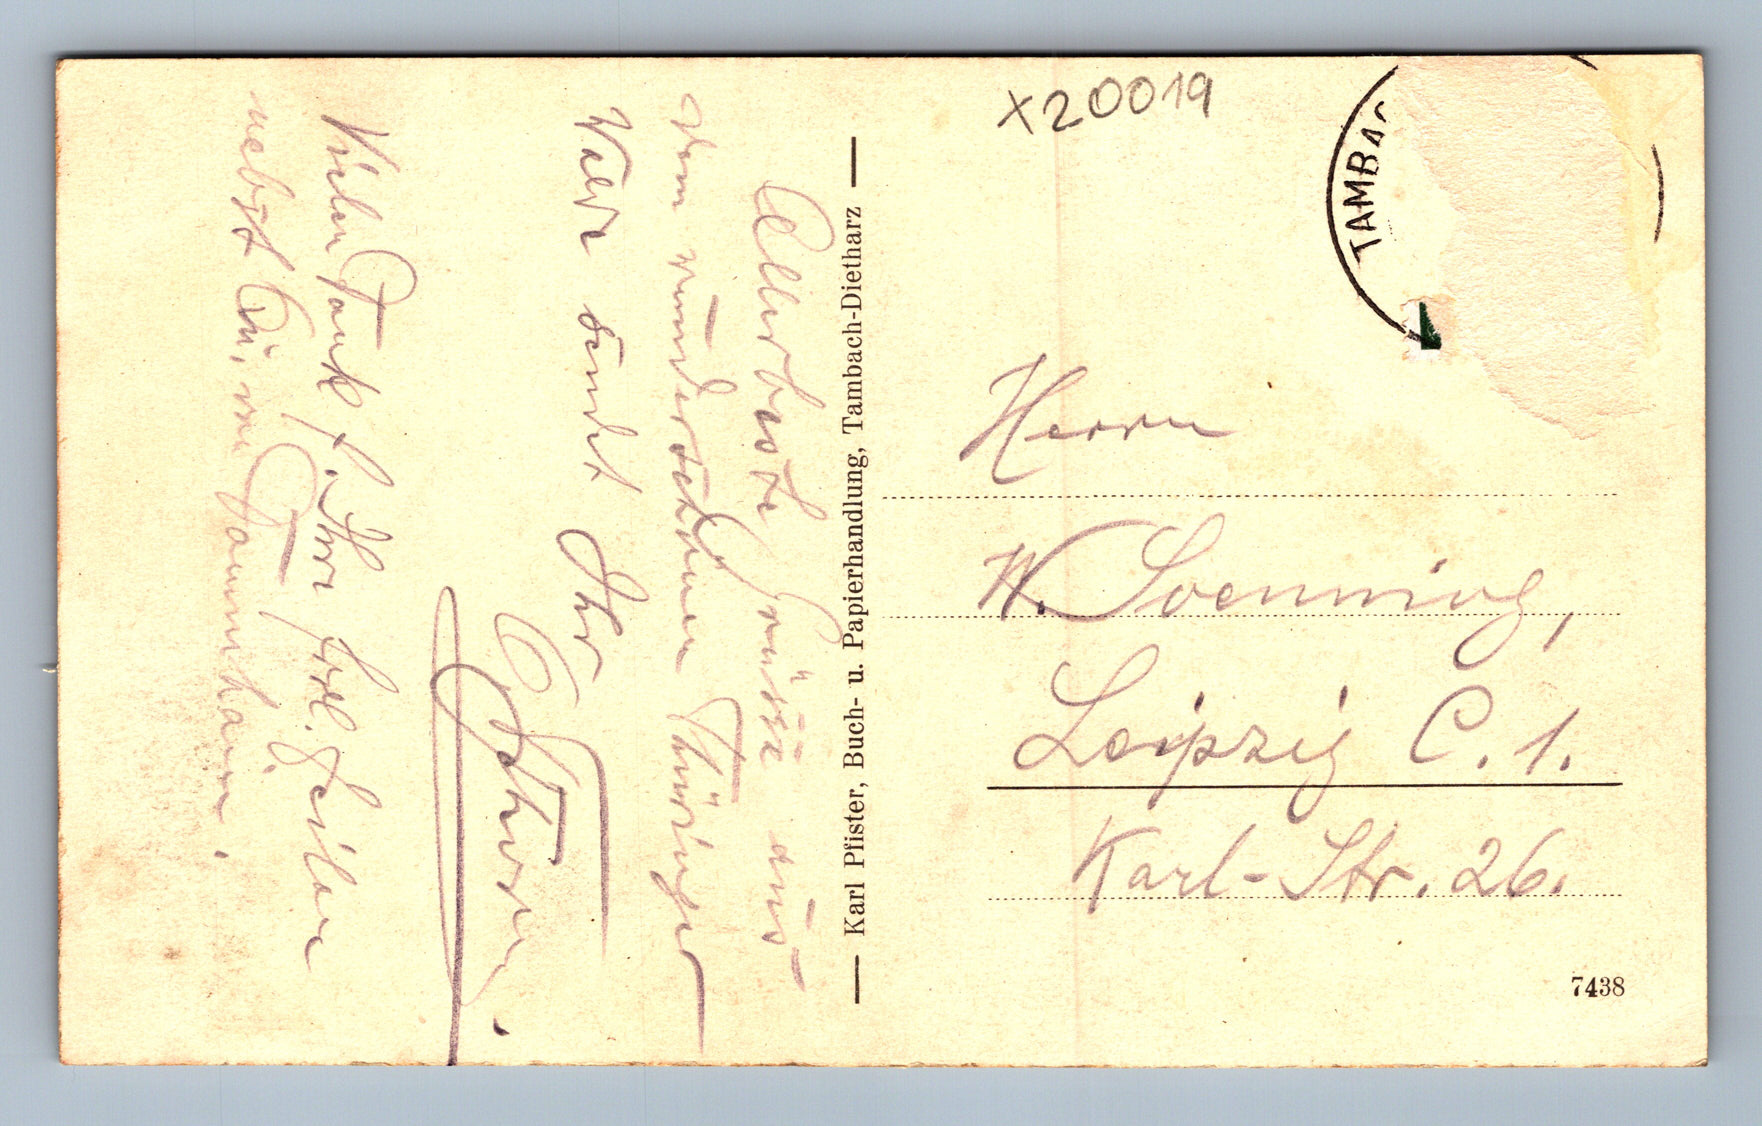 x20019
TAMBAC
Allerbeste Grüsse aus
dem wunderschönen Thüringer
Wald sendet Ihr
Vielen Dank f. Ihre frdl. Zeilen
nebst
Karl Pfister, Buch- u. Papierhandlung, Tambach-Dietharz
Herrn
W. Soenning,
Leipzig C. 1.
Karl-Str. 26.
7438